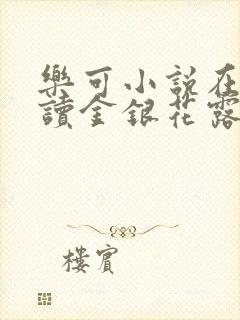 樂可小說在
讀金銀花露
樓賓